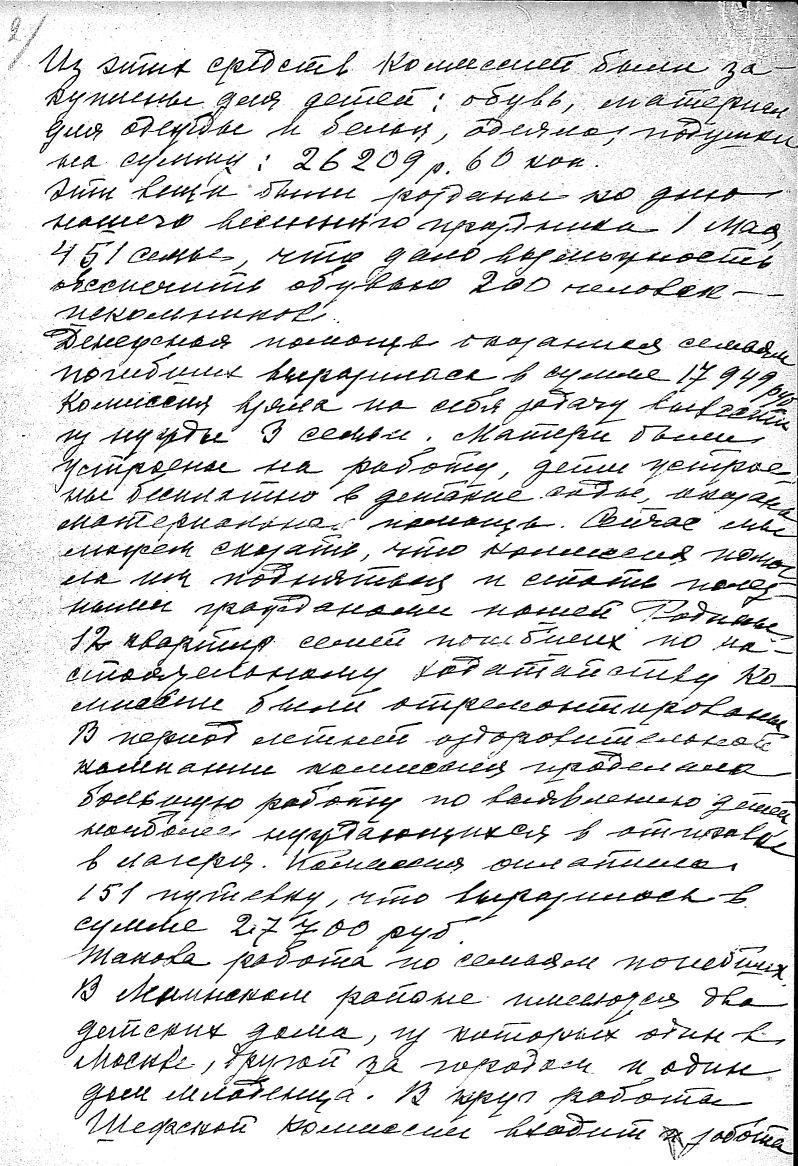 2/
Из этих средств Комиссией были за-
куплены для детей: обувь, материал
для одежды и белья, одеяла, подушки
на сумму: 26 209 р. 60 коп.
Эти вещи были розданы ко дню
нашего весеннего праздника 1 Мая,
451 семье, что дало возможность
обеспечить обувью 200 человек —
школьников.
Денежная помощь оказанная семьям
погибших выразилась в сумме 17 949 руб
Комиссия взяла на себя задачу вывести
из нужды 3 семьи. Матери были
устроены на работу, дети устрое-
ны бесплатно в детские сады, оказана
материальная помощь. Сейчас мы
можем сказать, что комиссия помог
ла им подняться и стать полез-
ными гражданами нашей Родины.
12 квартир семей погибших по на-
стоятельному ходатайству Ко-
миссии были отремонтированы
В период летней оздоровительной
кампании комиссия проделала
большую работу по выявлению детей
наиболее нуждающихся в отправке
в лагеря. Комиссия оплатила
151 путевку, что выразилось в
сумме 27 700 руб.
Такова работа по семьям погибших.
В районе имеются два
детских дома, из которых один в
Москве, другой за городом и один
дом младенца. В круг работы
Шефской комиссии входит и работа